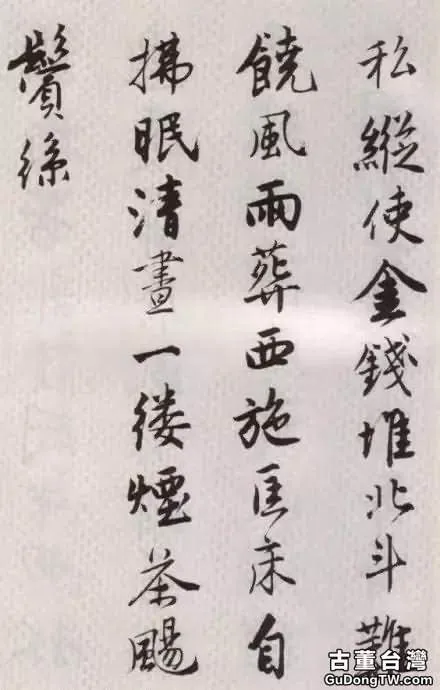 私縱使金錢堆北斗難
饒風雨葬西施匡床自
拂眠清晝一縷煙茶颺
鬢絲
古董台灣
GuDongTW.com